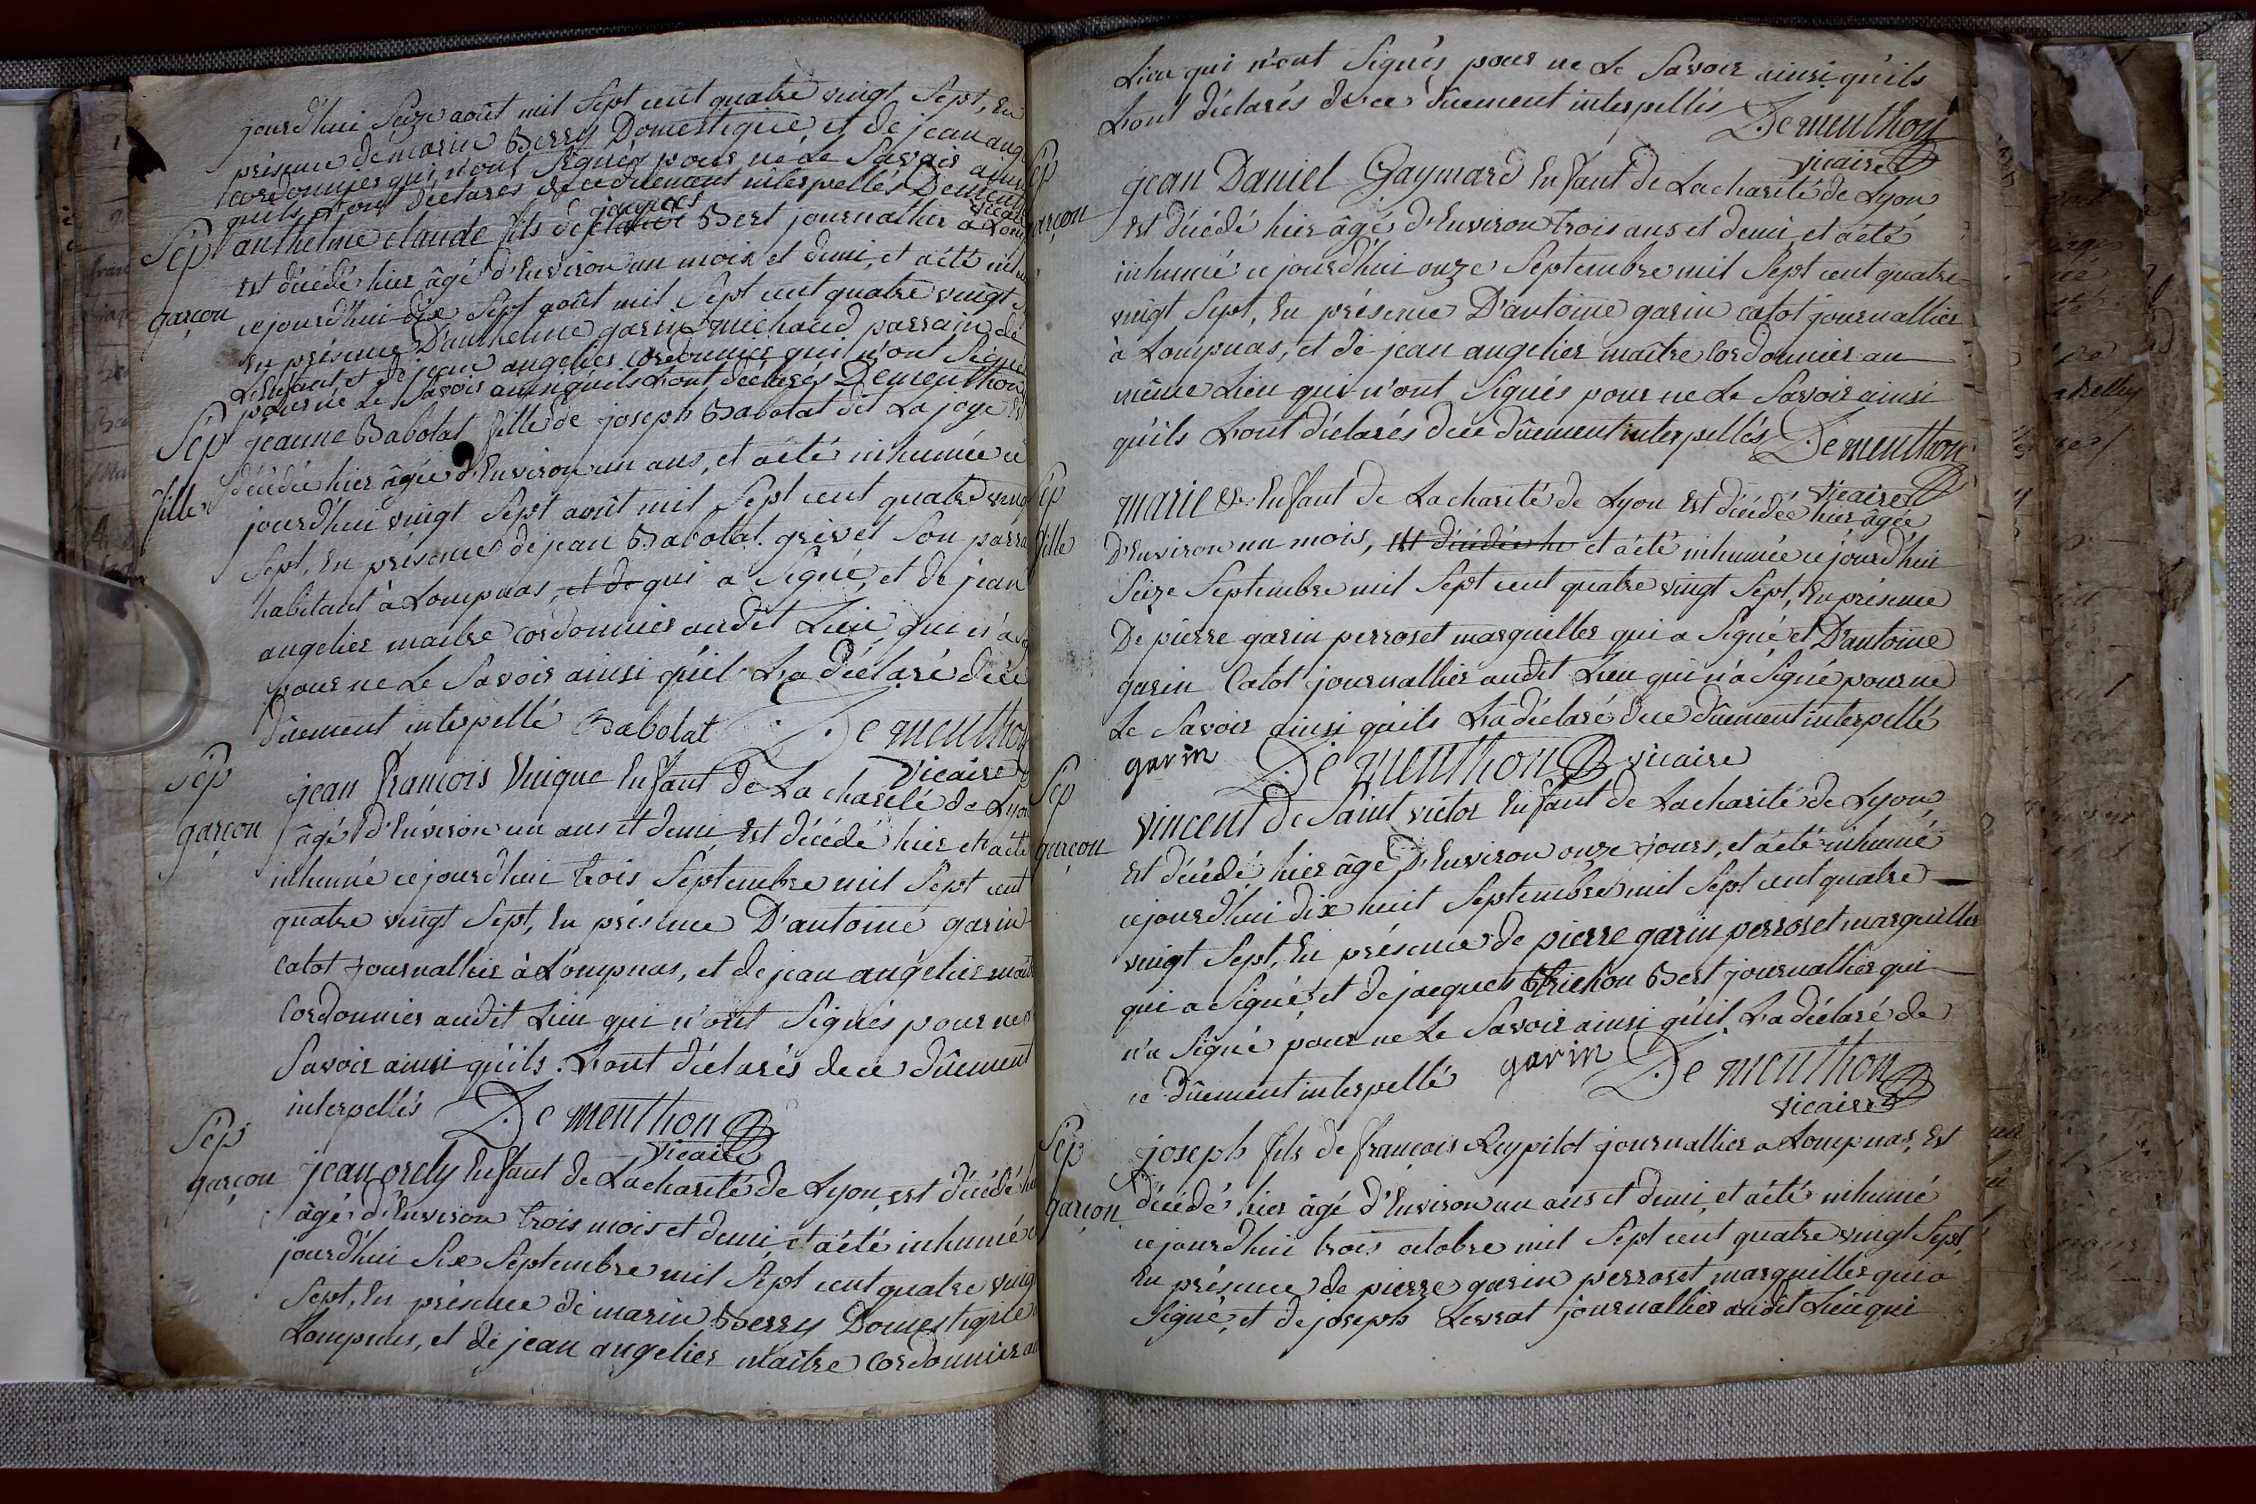 jourd'hui Seize août mil Sept cent quatre vingt Sept, En
présence de marin Berry Domestique, et de jean ang
cordonnier qui n'ont Signés pour ne Le Savoir ainsi
qu'ils L'ont déclarés de ce dûement interpellés Dementh
vicaire
Sep
garçon
anthelme claude fils de jacques Bert journallier à Lomp
est décédé hier âgé d'Environ un mois et demi, et a été inhu
cejourd'hui dix Sept août mil Sept cent quatre vingt S
En présence D'anthelme garin michaud parrain de
L'Enfant, et de jean angelier cordonnier qui n'ont Signé
pour ne Le Savoir ainsi qu'ils L'ont déclarés Dementhon
Sep
fille
jeanne Babolat fille de joseph Babolat dit La joye Est
décédée hier âgée d'Environ un ans, et a été inhumée ce
jourd'hui vingt Sept août mil Sept cent quatre ving
Sept, En présence de jean Babolat grivet Son parra
habitant à Lompnas, et de qui a Signé, et de jean
angelier maitre cordonnier audit Lieu, qui n'a
pour ne Le Savoir ainsi qu'il L'a déclaré de ce
dûement interpellé Babolat Dementhon
vicaire
Sep
garçon
jean françois Unique Enfant de La charité de Lyon
âgé d'Environ un ans et demi, Est décédé hier et a été
inhumé cejourd'hui trois Septembre mil Sept cent
quatre vingt Sept, En présence D'antoine garin
catot journallier à Lompnas, et de jean angelier mait
Cordonnier audit Lieu qui n'ont Signés pour ne
Savoir ainsi qu'ils L'ont déclarés de ce dûement
interpellés Dementhon
vicaire
Sep
garçon
jean orely Enfant de La charité de Lyon, est décédé hi
âgé d'Environ trois mois et demi, et a été inhumé
jourd'hui Six Septembre mil Sept cent quatre ving
Sept, En présence de marin Berry Domestique
Lompnas, et de jean angelier maître Cordonnier au
Lieu qui n'ont Signés pour ne Le Savoir ainsi qu'ils
L'ont déclarés de ce dûement interpellés
Dementhon
vicaire
Sep
garçon
jean Daniel Gaymard Enfant de La charité de Lyon
est décédé hier âgé d'Environ trois ans et demi, et a été
inhumé ce jourd'hui onze Septembre mil Sept cent quatre
vingt Sept, En présence D'antoine garin catot journallier
à Lompnas, et de jean angelier maître Cordonnier au
même Lieu qui n'ont Signés pour ne Le Savoir ainsi
qu'ils L'ont déclarés de ce dûement interpellés Dementhon
vicaire
Sep
fille
marie Enfant de La charité de Lyon est décédée hier âgée
D'Environ un mois, est décédée hi et a été inhumée cejourd'hui
Seize Septembre mil Sept cent quatre vingt Sept, En présence
De pierre garin perroset marguiller qui a Signé, et D'antoine
garin Catot journallier audit Lieu qui n'a Signé pour ne
Le Savoir ainsi qu'ils L'a déclaré de ce dûement interpellé
garin Dementhon vicaire
Sep
garçon
vincent de Saint victor Enfant de La charité de Lyon,
est décédé hier âgé D'Environ onze jours, et a été inhumé
cejourd'hui dix huit Septembre mil Sept cent quatre
vingt Sept, En présence de pierre garin perroset marguiller
qui a Signé, et de jacques Bert journallier qui
n'a Signé pour ne Le Savoir ainsi qu'il L'a déclaré de
ce dûement interpellé garin Dementhon
vicaire
Sep
garçon
joseph fils de françois Reypilot journallier a Lompnas, Est
décédé hier âgé d'Environ un ans et demi, et a été inhumé
cejourd'hui trois octobre mil Sept cent quatre vingt Sept,
En présence de pierre garin perroset marguiller qui a
Signé, et de joseph Levrat journallier audit Lieu qui